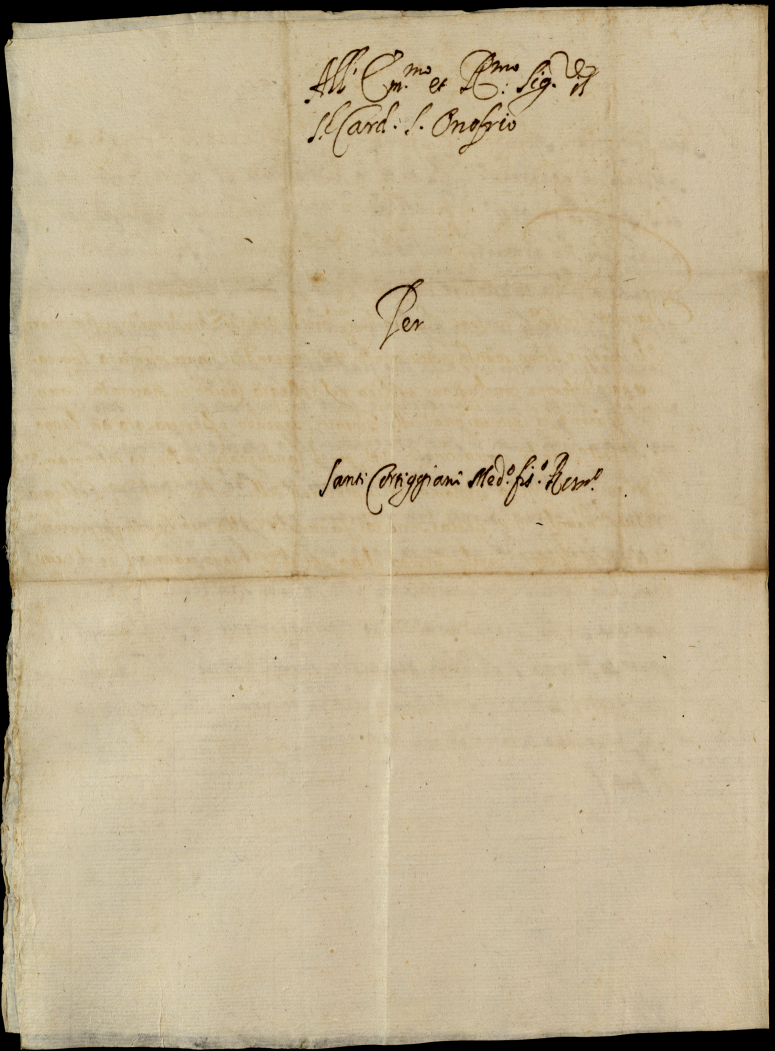 All' Em.mo et R.mo: Sig.r il
S.r Card: S. Onofrio
Per
Santi Cortiggiani Med.o fis.o Rom.o